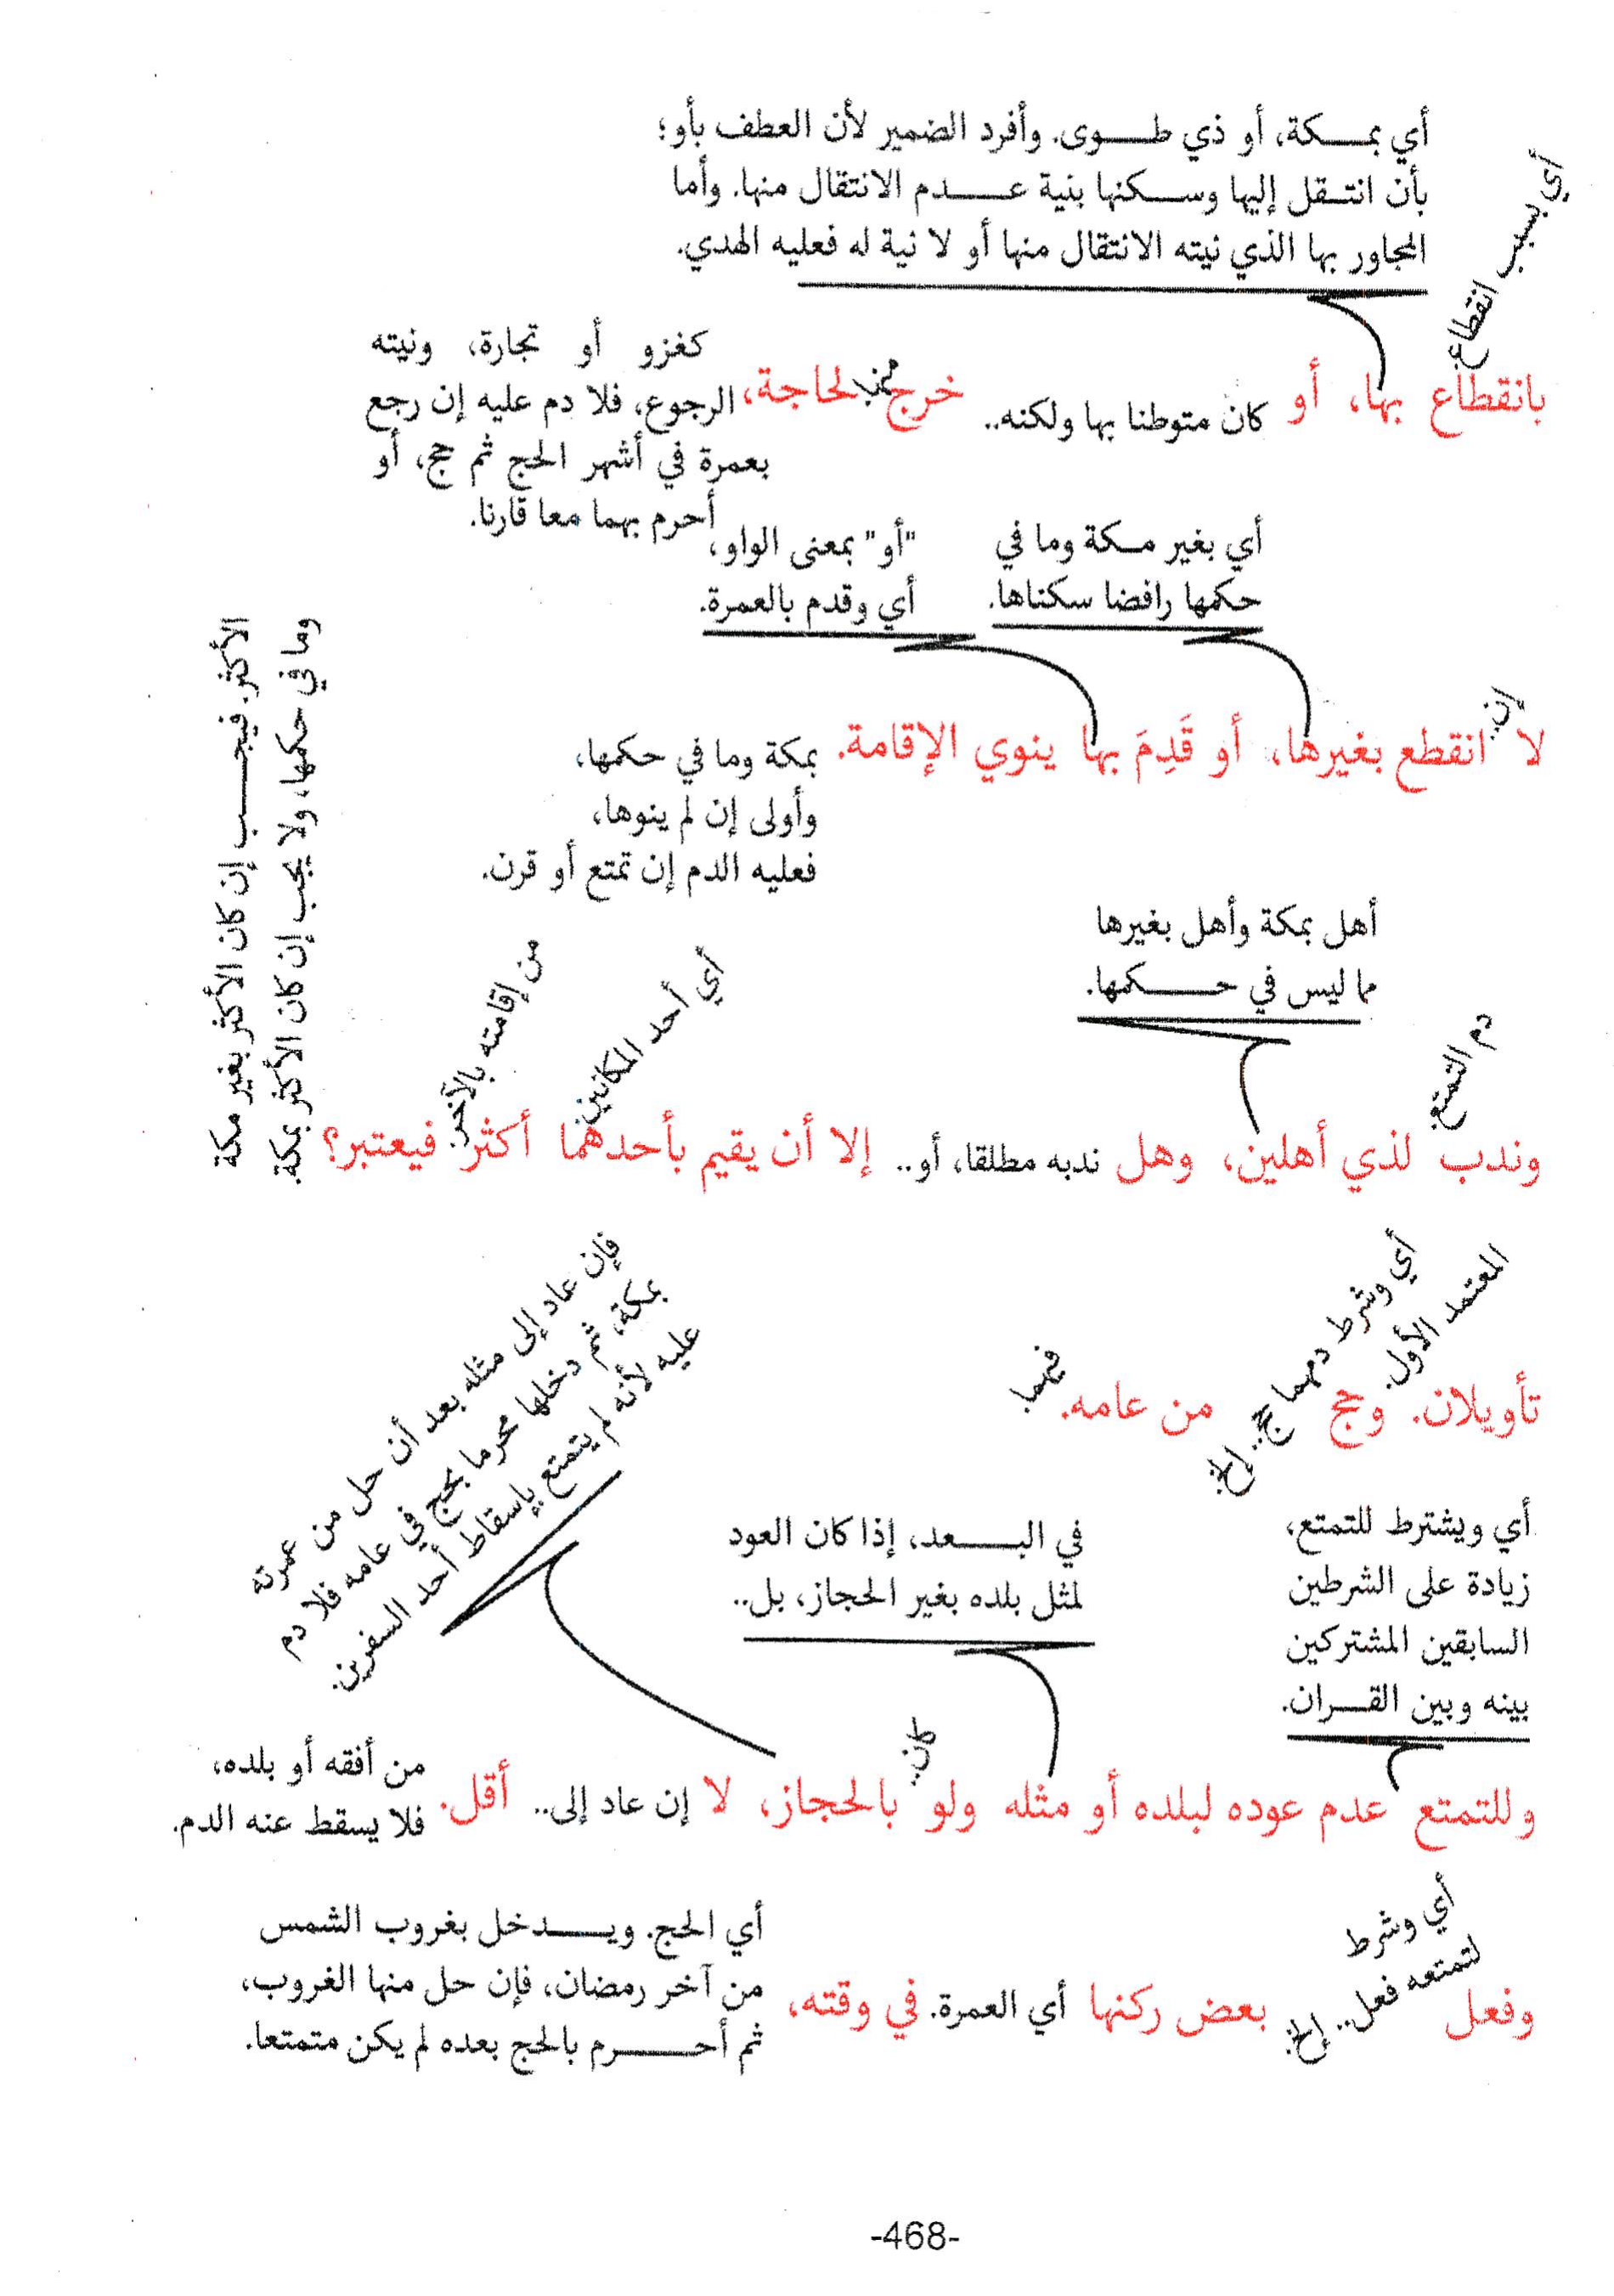 أي بمكة، أو ذي طوى. وأفرد الضمير لأن العطف بأو؛
بأن انتقل إليها وسكنها بنية عدم الانتقال منها. وأما
المجاور بها الذي نيته الانتقال منها أو لا نية له فعليه الهدي.
أي بسبب انقطاع.
بانقطاع بها، أو كان متوطنا بها ولكنه.. خرج منها لحاجة،
كغزو أو تجارة، ونيته
الرجوع، فلا دم عليه إن رجع
بعمرة في أشهر الحج ثم حج، أو
أحرم بهما معا قارنا.
أي بغير مكة وما في
حكمها رافضا سكناها.
"أو" بمعنى الواو،
أي وقدم بالعمرة.
لا إن.. انقطع بغيرها، أو قَدِمَ بها ينوي الإقامة.
بمكة وما في حكمها،
وأولى إن لم ينوها،
فعليه الدم إن تمتع أو قرن.
أهل بمكة وأهل بغيرها
مما ليس في حكمها.
دم التمتع.
أي أحد المكانين.
من إقامته بالآخر.
وندب لذي أهلين، وهل ندبه مطلقا، أو.. إلا أن يقيم بأحدهما أكثر فيعتبر؟
الأكثر. فيجب إن كان الأكثر بغير مكة
وما في حكمها، ولا يجب إن كان الأكثر بمكة.
المعتمد الأول.
أي وشرط دمهما حج.. إلخ.
تأويلان. وحج من عامه. فيهما
أي ويشترط للتمتع،
زيادة على الشرطين
السابقين المشتركين
بينه وبين القران.
في البعد، إذا كان العود
لمثل بلده بغير الحجاز، بل..
فإن عاد إلى مثله بعد أن حل من عمرته
بمكة، ثم دخلها محرما بحج في عامه فلا دم
عليه لأنه لم يتمتع بإسقاط أحد السفرين.
وللتمتع عدم عوده لبلده أو مثله ولو كان.. بالحجاز، لا إن عاد إلى.. أقل.
من أفقه أو بلده،
فلا يسقط عنه الدم.
أي وشرط
لتمتعه فعل.. إلخ.
وفعل بعض ركنها أي العمرة. في وقته،
أي الحج. ويدخل بغروب الشمس
من آخر رمضان، فإن حل منها الغروب،
ثم أحرم بالحج بعده لم يكن متمتعا.
-468-